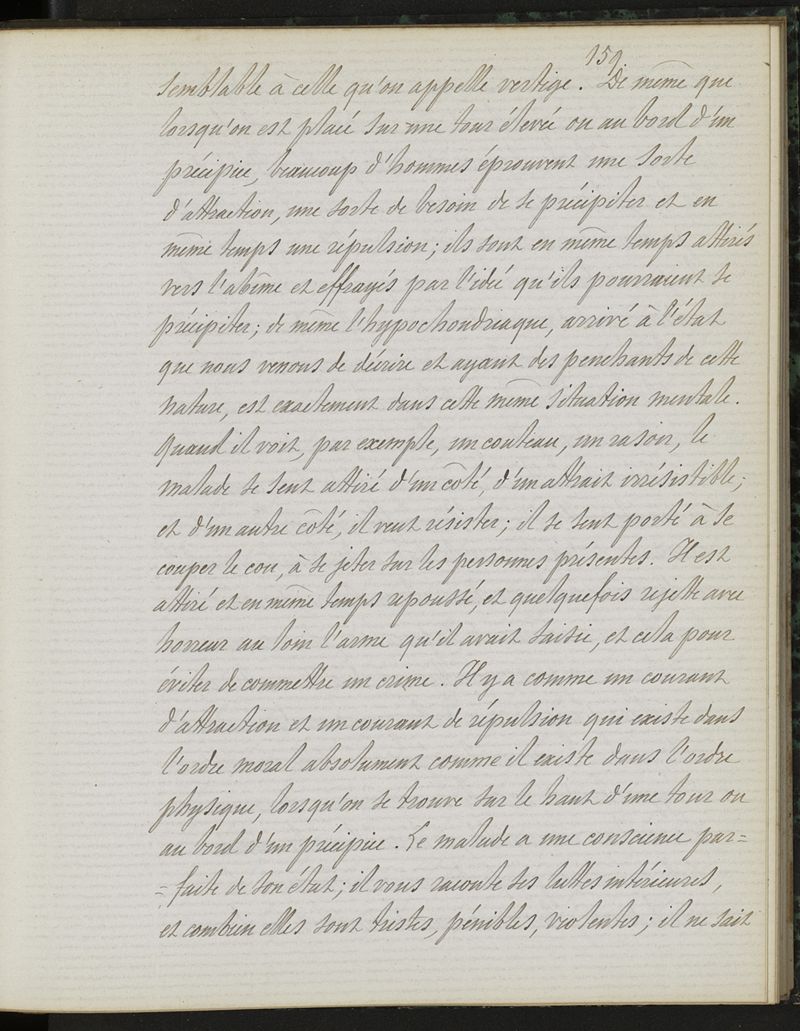 159
semblable à celle qu'on appelle vertige. De même que
lorsqu'on est placé sur une tour élevée ou au bord d'un
précipice, beaucoup d'hommes éprouvent une sorte
d'attraction, une sorte de besoin de se précipiter et en
même temps une répulsion; ils sont en même temps attirés
vers l'abîme et effrayés par l'idée qu'ils pourraient se
précipiter; de même l'hypochondriaque, arrivé à l'état
que nous venons de décrire et ayant des penchants de cette
nature, est exactement dans cette même situation mentale.
Quand il voit, par exemple, un couteau, un rasoir, le
malade se sent attiré d'un côté, d'un attrait irrésistible;
et d'un autre côté, il veut résister; il se sent porté à se
couper le cou, à se jeter sur les personnes présentes. Il est
attiré et en même temps repoussé, et quelquefois rejette avec
horreur au loin l'arme qu'il avait saisie, et cela pour
éviter de commettre un crime. Il y a comme un courant
d'attraction et un courant de répulsion qui existe dans
l'ordre moral absolument comme il existe dans l'ordre
physique, lorsqu'on se trouve sur le haut d'une tour ou
au bord d'un précipice. Le malade a une conscience par=
=faite de son état; il vous raconte ses luttes intérieures,
et combien elles sont tristes, pénibles, violentes; il ne sait